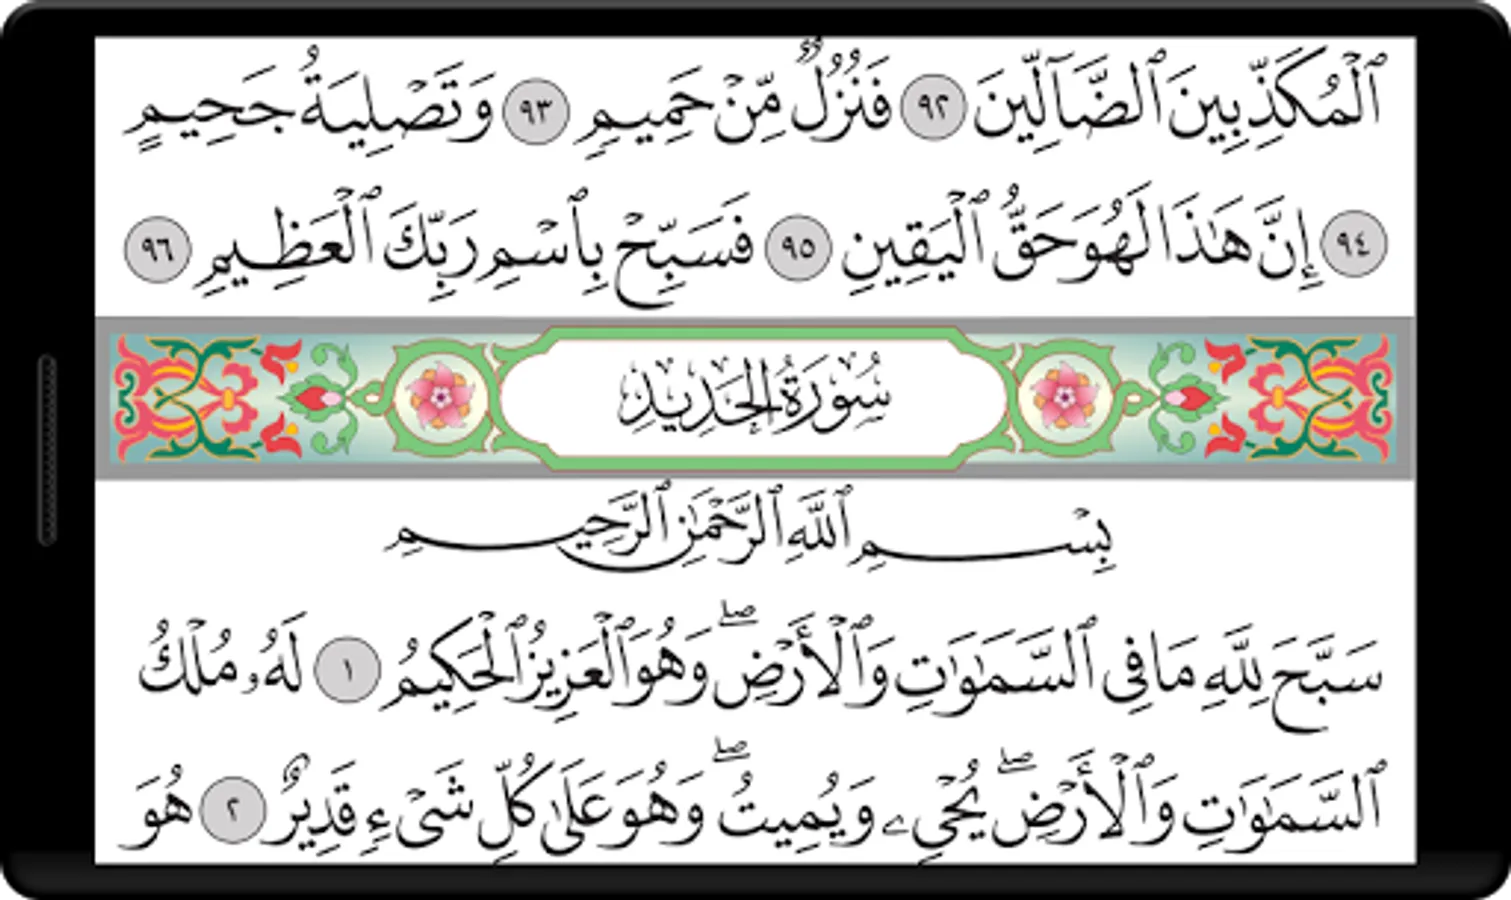 ٱلۡمُكَذِّبِينَ ٱلضَّآلِّينَ ٩٢ فَنُزُلٞ مِّنۡ حَمِيمٖ ٩٣ وَتَصۡلِيَةُ جَحِيمٍ
٩٤ إِنَّ هَٰذَا لَهُوَ حَقُّ ٱلۡيَقِينِ ٩٥ فَسَبِّحۡ بِٱسۡمِ رَبِّكَ ٱلۡعَظِيمِ ٩٦
سُورَةُ الحَدِيدِ
بِسۡمِ ٱللَّهِ ٱلرَّحۡمَٰنِ ٱلرَّحِيمِ
سَبَّحَ لِلَّهِ مَا فِي ٱلسَّمَٰوَٰتِ وَٱلۡأَرۡضِۖ وَهُوَ ٱلۡعَزِيزُ ٱلۡحَكِيمُ ١ لَهُۥ مُلۡكُ
ٱلسَّمَٰوَٰتِ وَٱلۡأَرۡضِۖ يُحۡيِۦ وَيُمِيتُۖ وَهُوَ عَلَىٰ كُلِّ شَيۡءٖ قَدِيرٌ ٢ هُوَ